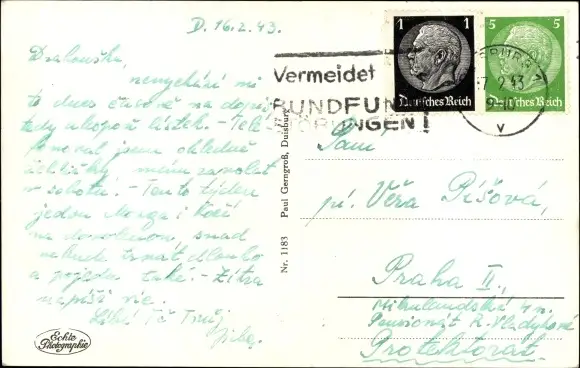 D. 16.2.43.
Drahouška,
nevychází mi
to dnes časově na dopis
tedy alespoň lístek. - Tele-
jsem ohledně
mám zavolat
v sobotu. - Tento týden
jedou Morga i
na dovolenou, snad
nebude trvat dlouho
a pojedu také. - Zítra
napíši více.
Líbá Tě Tvůj
Echte
Photographie
Nr. 1183 Paul Gerngroß, Duisburg
Vermeidet
RUNDFUNK
STÖRUNGEN!
1 1
Deutsches Reich
5 5
Deutsches Reich
43
v
Paní
pí. Věra Píšová,
Praha II.,
Mikulandská
Pensionát
Protektorat